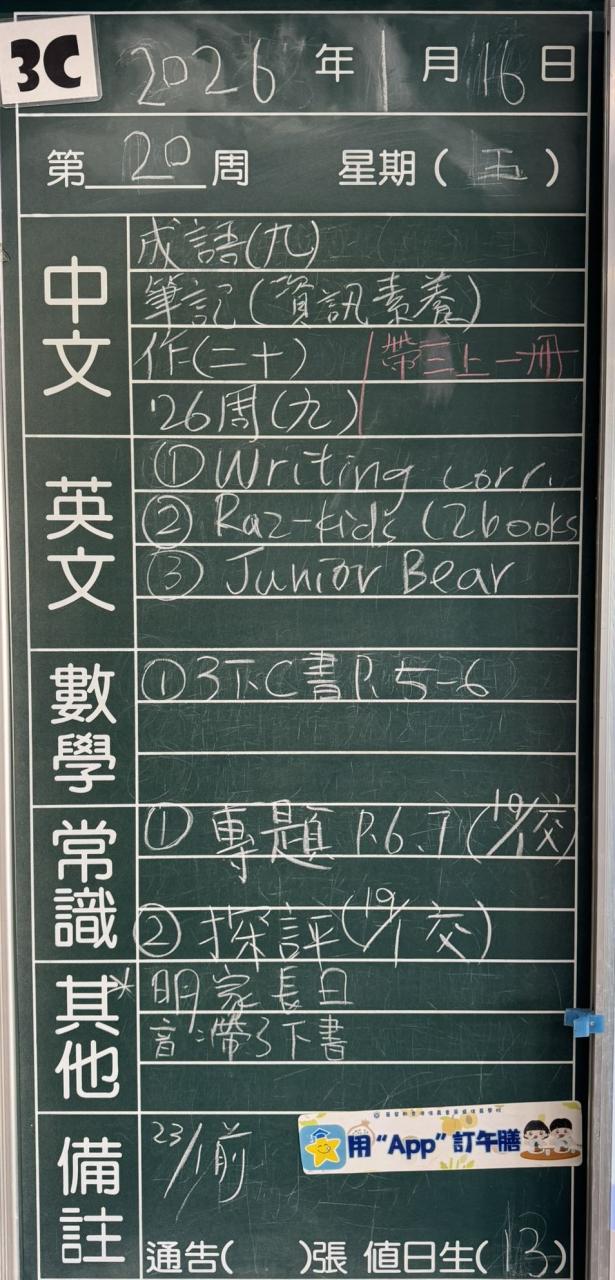 3C
2026年1月16日
第20周 星期(五)
中文
成語(九)
筆記(資訊素養)
作(二十) 帶三上一冊
'26周(九)
英文
① Writing corr.
② Raz-kids (2books
③ Junior Bear
數學
①3下C書P.5-6
常識
① 專題 P.6.7(19/1交)
② 探評(19/1交)
其他
*明家長日
音:帶3下書
備註
23/1前
用"App"訂午膳
通告( )張 值日生(13)